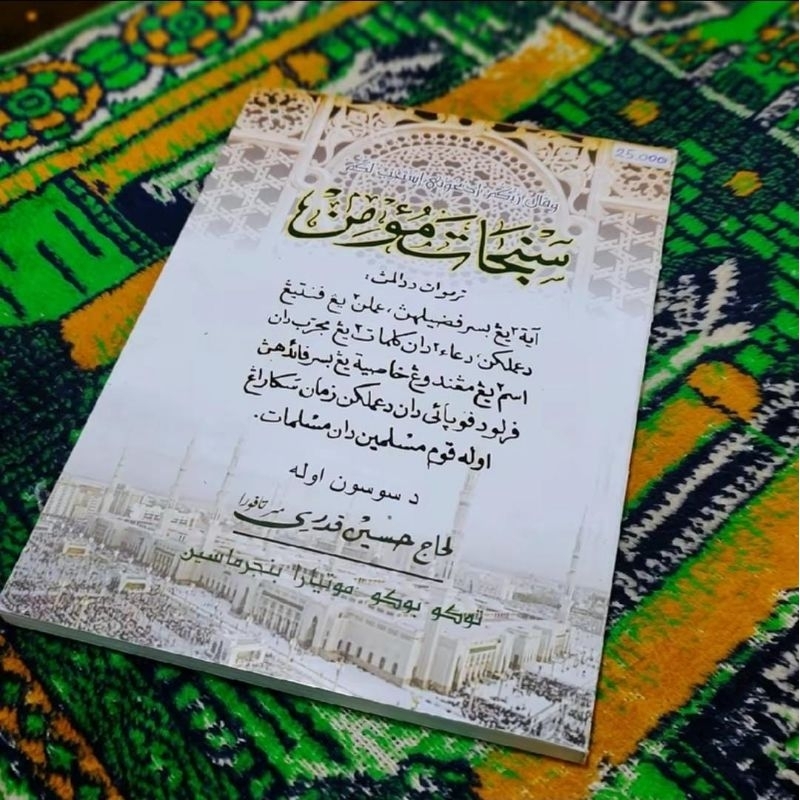 25.000
وقال ربكم ادعوني أستجب لكم
سنجات مؤمن
ترموات ددالمڽ:
آية٢ يڠ بسر فضيلهڽ، عملن٢ يڠ فنتيڠ
دعملكن، دعاء٢ دان كلمات٢ يڠ مجرّب دان
اسم٢ يڠ مڠندوڠ خاصية يڠ بسر فائدهڽ
فرلو دفوپائي دان دعملكن زمان سكاراڠ
اوله قوم مسلمين دان مسلمات.
د سوسون اوله
لحاج حسين قدري مرتافورا
توكو بوكو موتيارا بنجرماسين